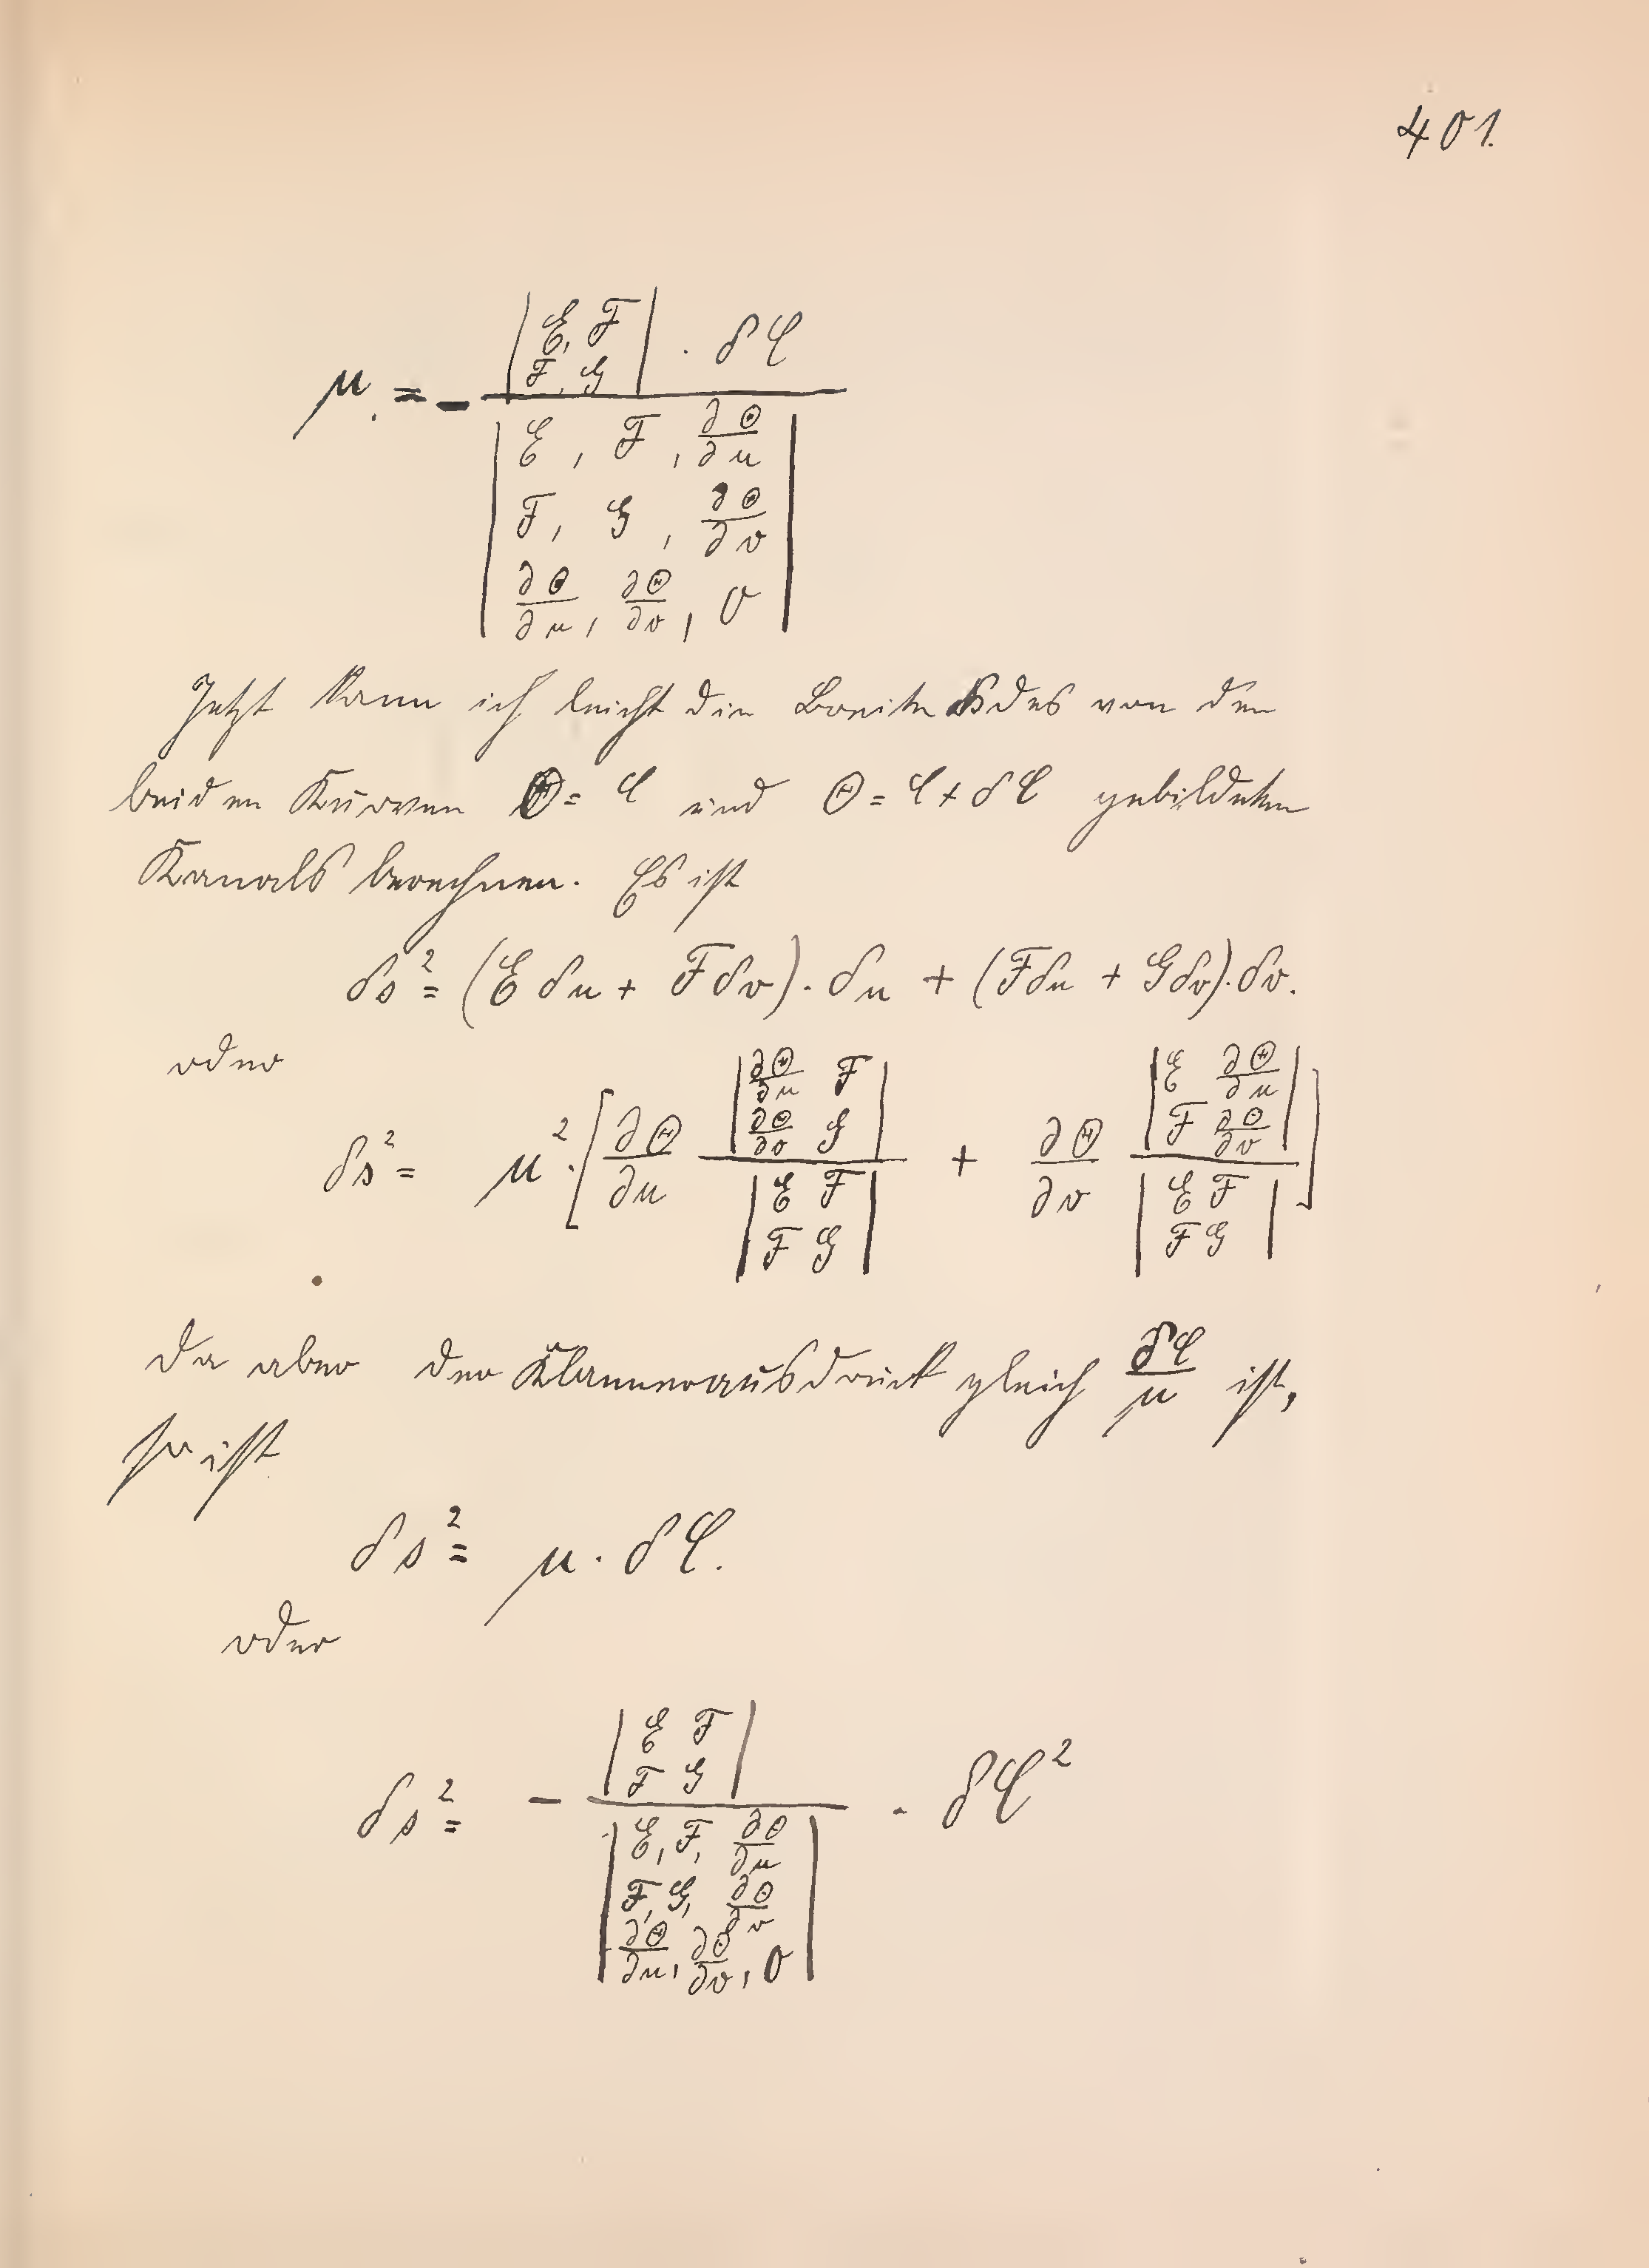 401.
μ. = - |E, F; F, G| · δC / |E, F, ∂Θ/∂u; F, G, ∂Θ/∂v; ∂Θ/∂u, ∂Θ/∂v, 0|
Jetzt kann ich leicht die Breite des von den
beiden Kurven Θ = C und Θ = C + δC gebildeten
Kanals berechnen. Es ist
δs² = (E δu + F δv) · δu + (F δu + G δv) · δv.
oder
δs² = μ² · [∂Θ/∂u |∂Θ/∂u F; ∂Θ/∂v G| / |E F; F G| + ∂Θ/∂v |E ∂Θ/∂u; F ∂Θ/∂v| / |E F; F G|]
da aber der Klammerausdruck gleich δC/μ ist,
so ist
δs² = μ · δC.
oder
δs² = - |E F; F G| / |E, F, ∂Θ/∂u; F, G, ∂Θ/∂v; ∂Θ/∂u, ∂Θ/∂v, 0| · δC²